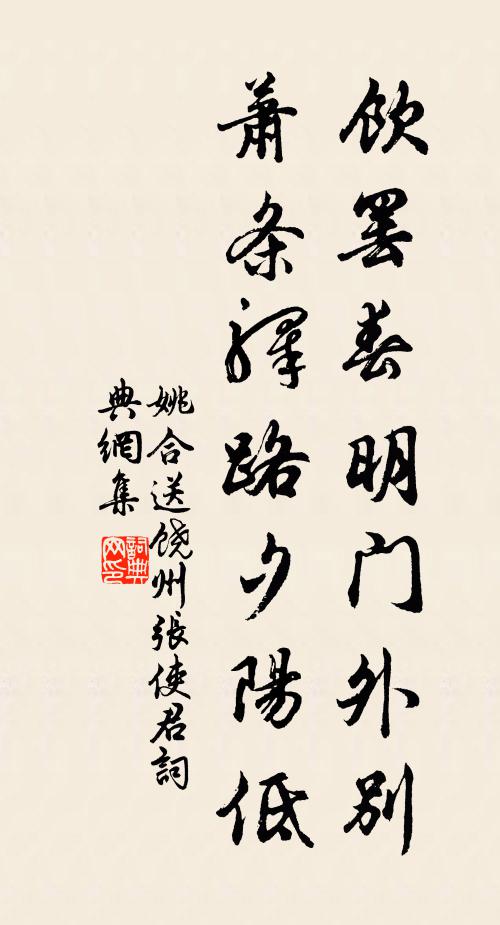 飲罷春明門外別
蕭条驛路夕陽低
姚合送饒州張使君詞
典網集
詞典
网印